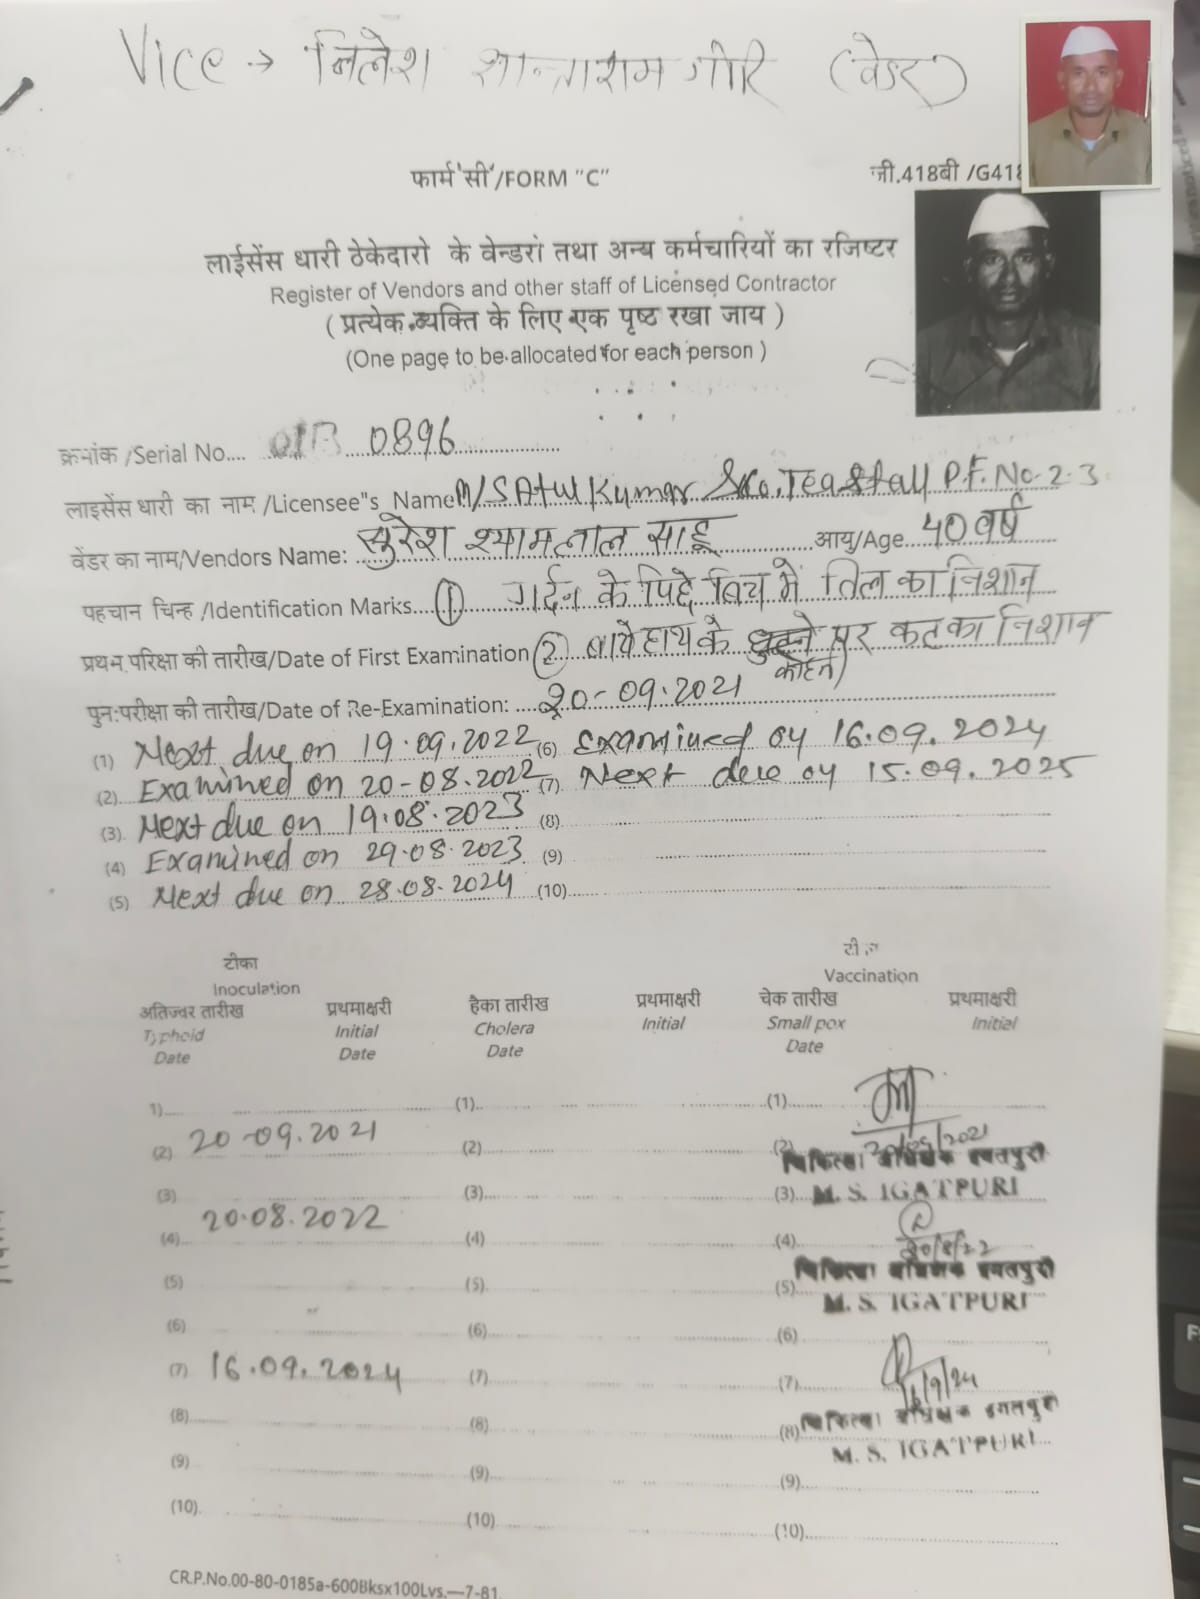 Vice → निलेश शान्ताराम गीरि (वेंडर)
फार्म 'सी'/FORM "C"
जी.418बी /G418
लाईसेंस धारी ठेकेदारो के वेन्डरों तथा अन्य कर्मचारियों का रजिष्टर
Register of Vendors and other staff of Licensed Contractor
( प्रत्येक व्यक्ति के लिए एक पृष्ठ रखा जाय )
(One page to be allocated for each person )
क्रनांक /Serial No.... 01B 0896
लाइसेंस धारी का नाम /Licensee"s Name M/S Atul Kumar & Co. Tea Stall P.F. No. 2-3
वेंडर का नाम/Vendors Name: सुरेश श्यामलाल साहू आयु/Age 40 वर्ष
पहचान चिन्ह /Identification Marks (1) गर्दन के पिछे बिच में तिल का निशान
प्रथम परिक्षा की तारीख/Date of First Examination (2) बाये हाथ के कोहनी पर कट का निशान
पुनःपरीक्षा की तारीख/Date of Re-Examination: 20-09.2021
(1) Next due on 19.09.2022 (6) Examined on 16.09.2024
(2) Examined on 20-08.2022 (7) Next due on 15.09.2025
(3) Next due on 19.08.2023 (8)
(4) Examined on 29.08.2023 (9)
(5) Next due on 28.08.2024 (10)
टीका
Inoculation
Vaccination
अतिज्वर तारीख प्रथमाक्षरी हैका तारीख प्रथमाक्षरी चेक तारीख प्रथमाक्षरी
Typhoid Initial Cholera Initial Small pox Initial
Date Date Date Date
1) (1) (1)
(2) 20-09.2021 (2) (2) 20/09/2021
चिकित्सा अधिक्षक इगतपुरी
(3) (3) (3) M. S. IGATPURI
(4) 20.08.2022 (4) (4) 20/8/22
चिकित्सा अधिक्षक इगतपुरी
(5) (5) (5) M. S. IGATPURI
(6) (6) (6)
(7) 16.09.2024 (7) (7) 16/9/24
(8) (8) (8) चिकित्सा अधिक्षक इगतपुरी
M. S. IGATPURI
(9) (9) (9)
(10) (10) (10)
CR.P.No.00-80-0185a-600Bksx100Lvs.—7-81